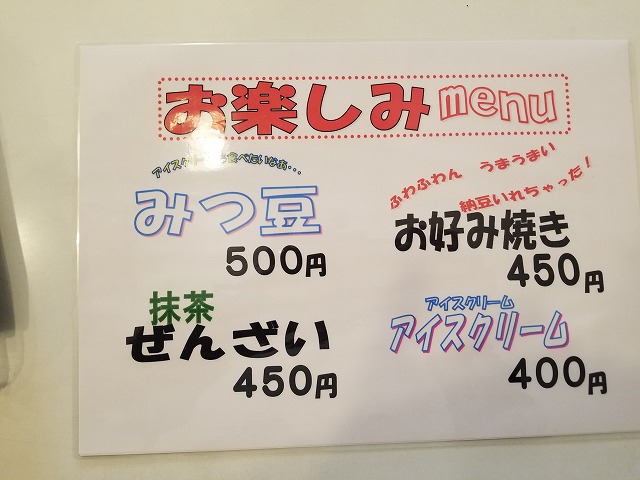 お楽しみmenu
アイスクリーム食べたいなあ・・・
みつ豆
500円
ふわふわん うまうまい
納豆いれちゃった!
お好み焼き
450円
抹茶
ぜんざい
450円
アイスクリーム
アイスクリーム
400円